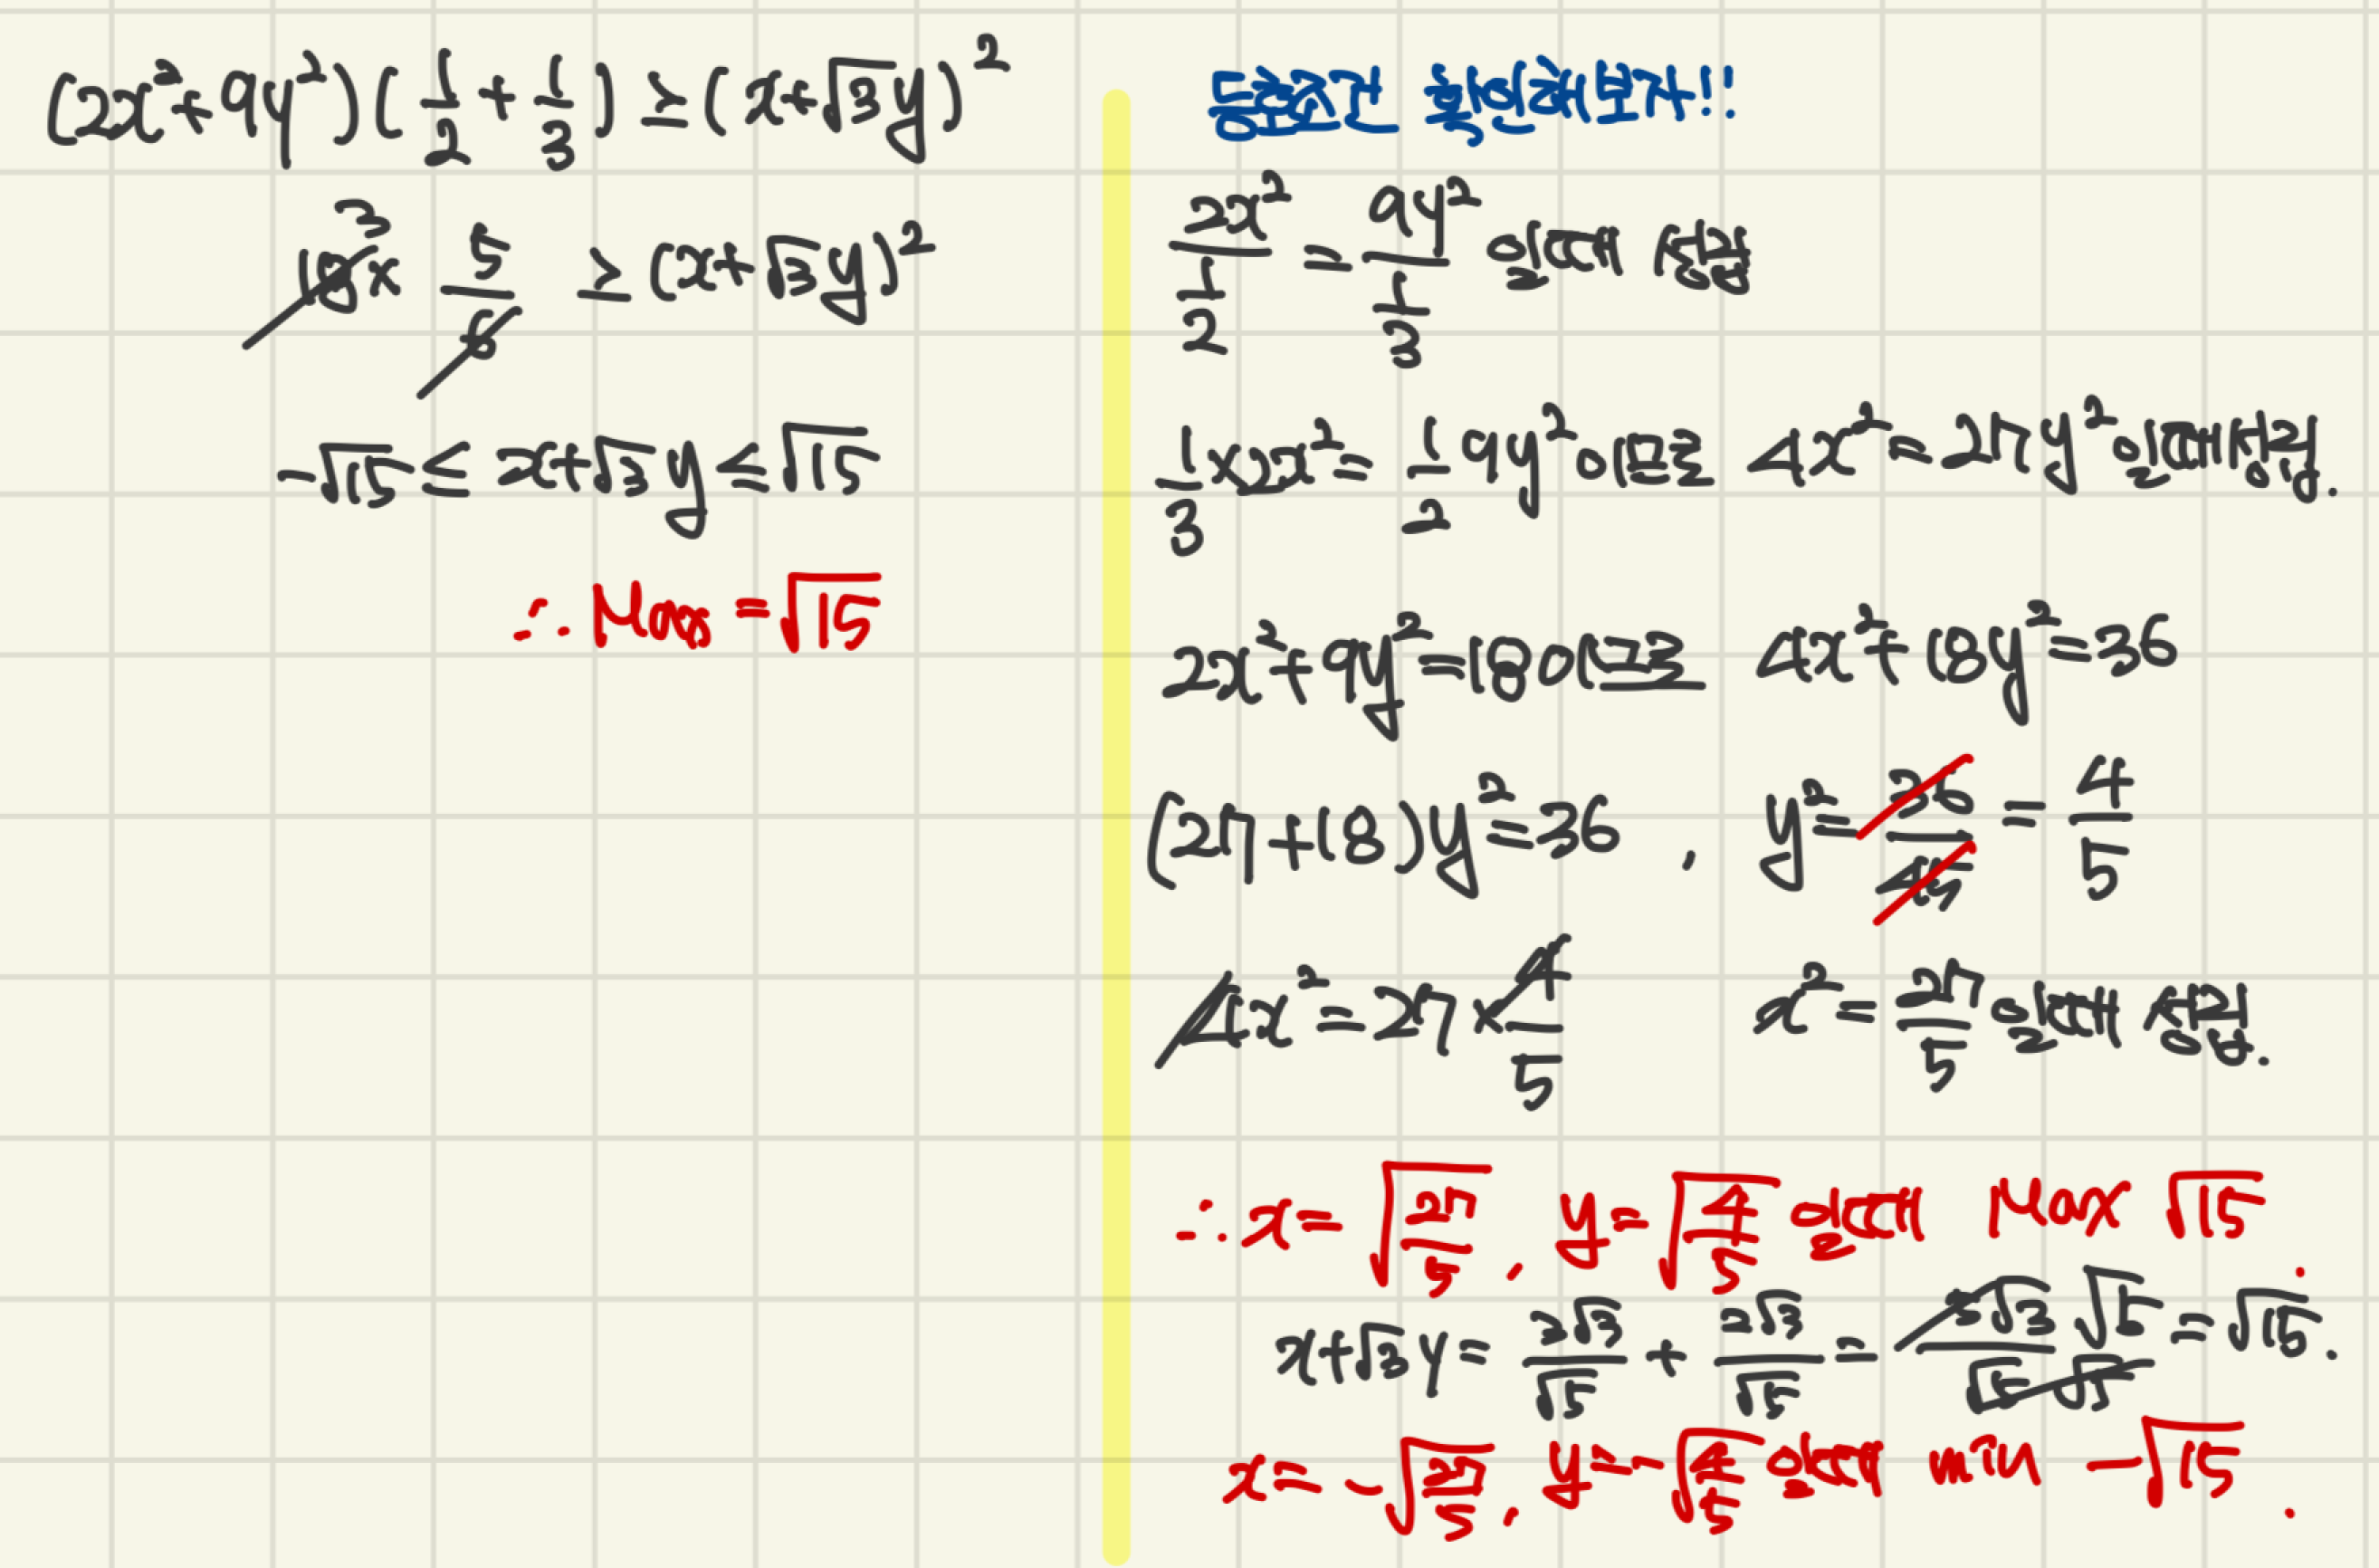 (2x²+9y²)(1/2+1/3)≥(x+√3y)²
18 3 × 5/6 ≥(x+√3y)²
-√15≤ x+√3y ≤√15
∴ Max =√15
등호조건 확인해보자!!
2x²/(1/2) = 9y²/(1/3) 일때 성립
1/3×2x²= 1/2 9y²이므로 4x²=27y²일때성립.
2x²+9y²=18이므로 4x²+18y²=36
(27+18)y²=36 , y²=36/45 = 4/5
4x²=27×4/5 x²=27/5일때 성립.
∴x=√(27/5), y=√(4/5)일때 Max √15.
x+√3y= 3√3/√5 + 2√3/√5 = 5√3 √5/√5 √5 =√15.
x=-√(27/5), y=-√(4/5)일때 min -√15.